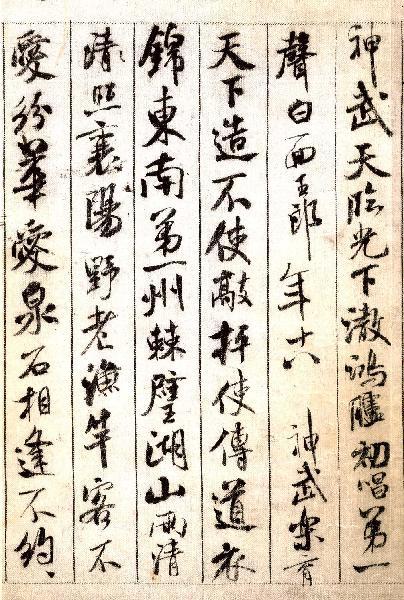 神武天臨光下澈鴻臚初唱第一
聲白面玉郎年十八神武樂育
天下造不使敲枰使傳道衣
錦東南第一州棘璧湖山兩清
清照襄陽野老漁竿客不
愛紛華愛泉石相逢不約、